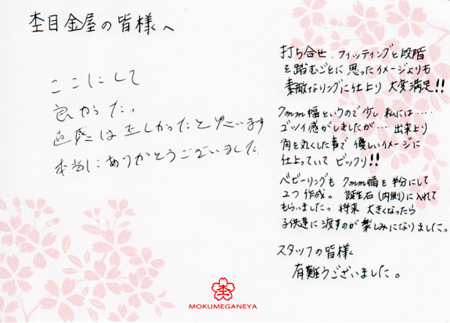 杢目金屋の皆様へ
ここにして
良かった。
直感は正しかったと思います
本当にありがとうございました
打ち合せ、フィッティングと段階
を踏むごとに思ったイメージよりも
素敵なリングに仕上り大変満足!!
7mm幅というので少し私には…
ゴツイ感がしましたが…出来上り
角を丸くした事で優しいイメージに
仕上っていてビックリ!!
ベビーリングも7mm幅を半分にして
2つ作成。誕生石(内側)に入れて
もらいました。将来大きくなったら
子供達に渡すのが楽しみになりました。
スタッフの皆様へ
有難うございました。
MOKUMEGANEYA